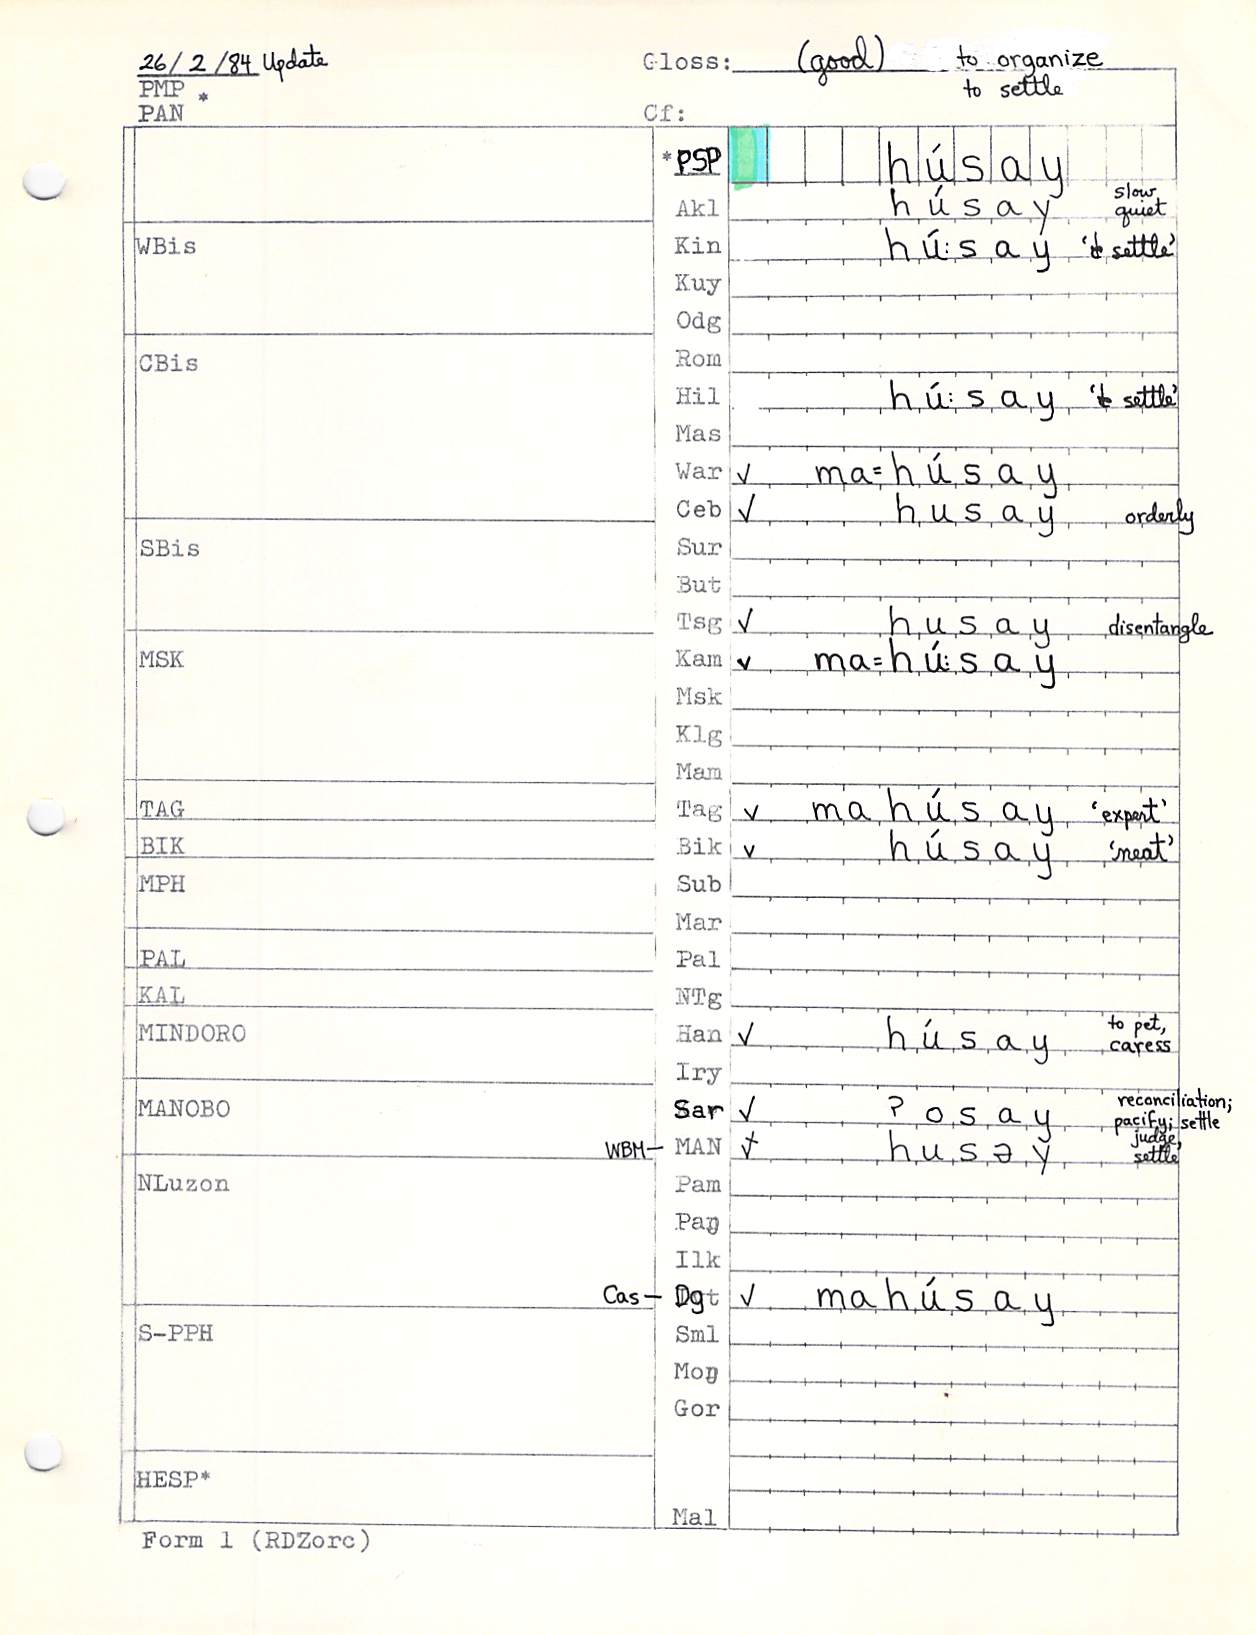 26/2/84 Update Gloss: (good) to organize
PMP * to settle
PAN Cf:
*PSP húsay
Akl húsay slow, quiet
WBis Kin hú:say 'to settle'
Kuy
Odg
CBis Rom
Hil hú:say 'to settle'
Mas
War ✓ ma=húsay
Ceb ✓ husay orderly
SBis Sur
But
Tsg ✓ husay disentangle
MSK Kam ✓ ma=hú:say
Msk
Klg
Mam
TAG Tag ✓ mahúsay 'expert'
BIK Bik ✓ húsay 'neat'
MPH Sub
Mar
PAL Pal
KAL NTg
MINDORO Han ✓ húsay to pet, caress
Iry
MANOBO Sar ✓ ?osay reconciliation; pacify; settle
WBM— MAN husəy judge, settle
NLuzon Pam
Paŋ
Ilk
Cas— Dgt ✓ mahúsay
S-PPH Sml
Moŋ
Gor
HESP*
Mal
Form 1 (RDZorc)